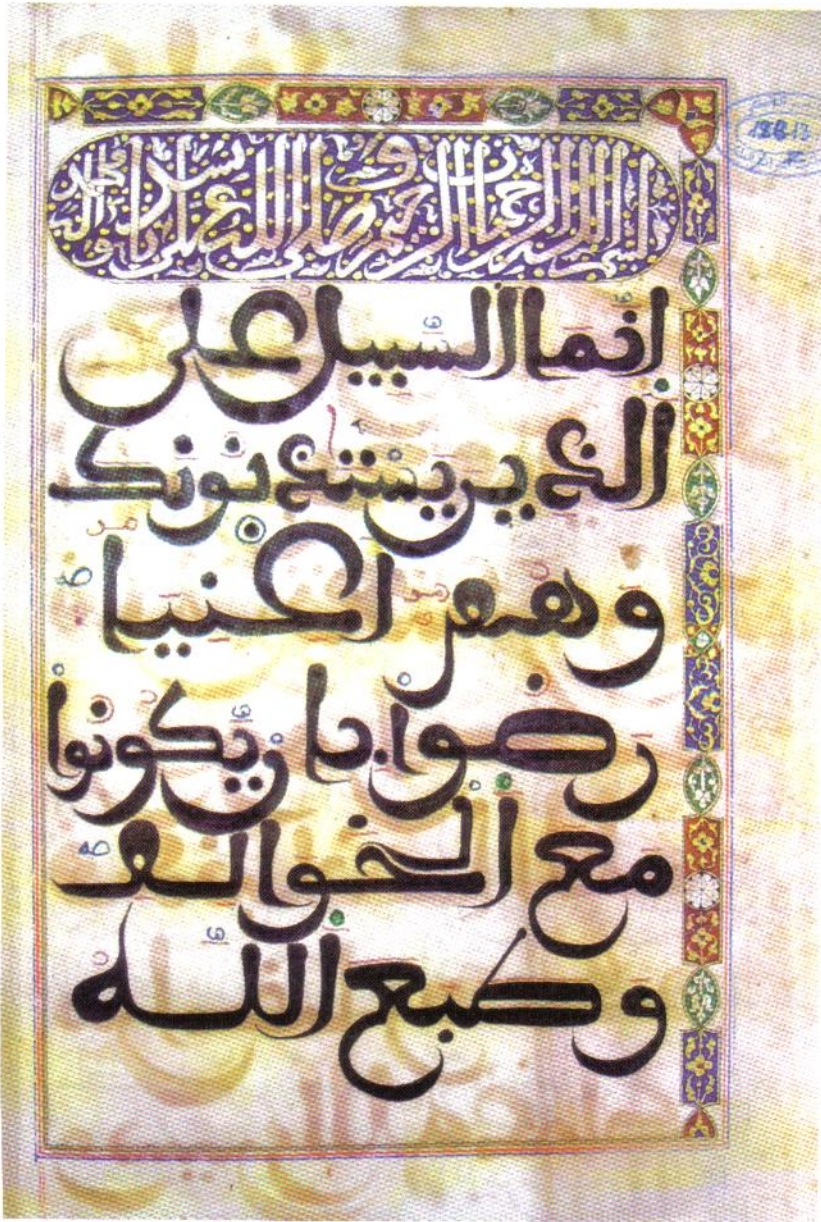 بسم الله الرحمن الرحيم صلى الله على
انما السبيل على
الذين يستـذنونك
وهم اغنيا
رضوا بان يكونوا
مع الخوالف
وطبع الله